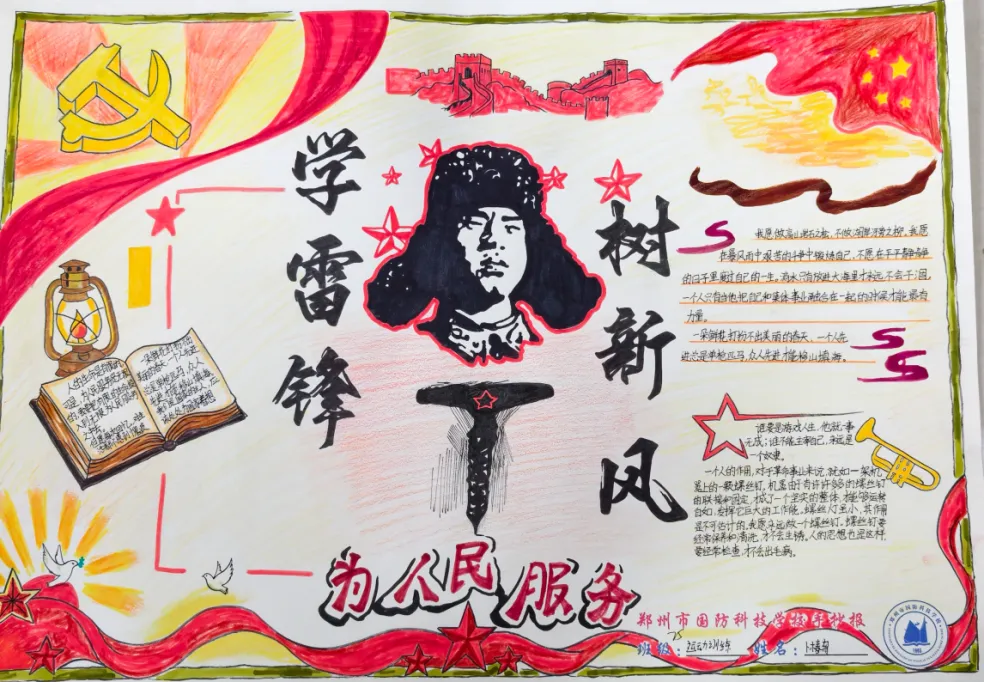 学雷锋
树新风
为人民服务
我愿做高山岩石之松，不做湖岸河旁之柳，我愿
在暴风雨中艰苦的斗争中锻炼自己，不愿在平平静静
的日子里度过自己的一生。滴水只有放进大海里才永远不会干涸，
一个人只有当他把自己和集体事业融合在一起的时候才能最有
力量。
一朵鲜花打扮不出美丽的春天，一个人先
进总是单枪匹马，众人先进才能移山填海。
谁要是游戏人生，他就一事
无成；谁不能主宰自己，永远是
一个奴隶。
一个人的作用，对于革命事业来说，就如一架机
器上的一颗螺丝钉。机器由于有许许多多的螺丝钉
的联接和固定，才成了一个坚实的整体，才能够运转
自如，发挥它巨大的工作能。螺丝钉虽小，其作用
是不可估计的。我愿永远做一个螺丝钉。螺丝钉要
经常保养和清洗，才不会生锈。人的思想也是这样，
要经常检查，才不会出毛病。
郑州市国防科技学校手抄报
班级：
姓名：